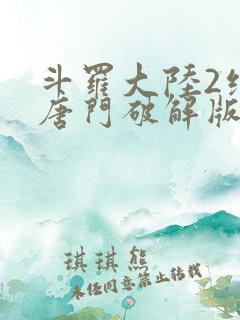 斗羅大陸2
唐門破解版
琪琪熊
未经同意禁止转载